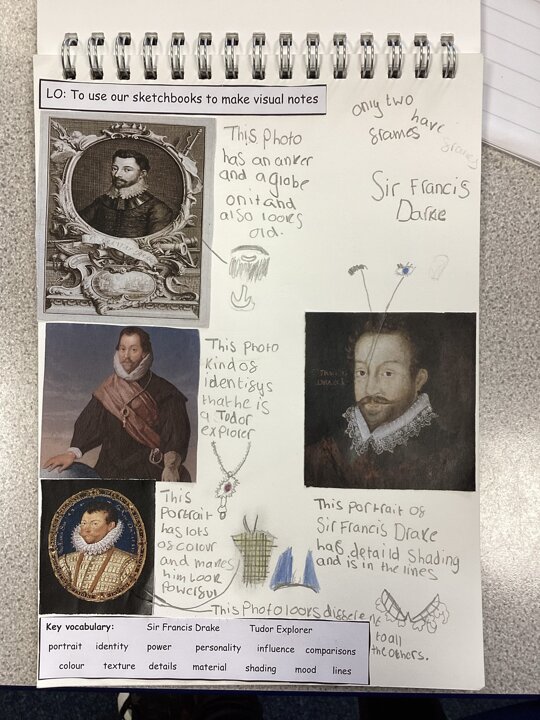 LO: To use our sketchbooks to make visual notes
only two
have
frames
frames
This photo
has an anker
and a globe
on it and
also looks
old.
Sir Francis
Darke
This photo
kind of
identifys
that he is
a Tudor
explorer
This
Portrait
has lots
of colour
and makes
him look
Powerful
This portrait of
Sir Francis Drake
has detaild shading
and is in the lines
This Photo looks different
to all
the others.
Key vocabulary: Sir Francis Drake Tudor Explorer
portrait identity power personality influence comparisons
colour texture details material shading mood lines